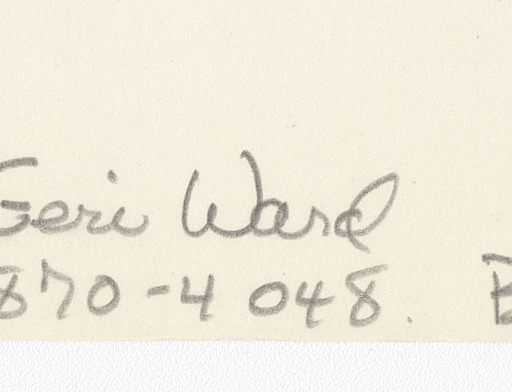 Geri Ward
870-4048. B